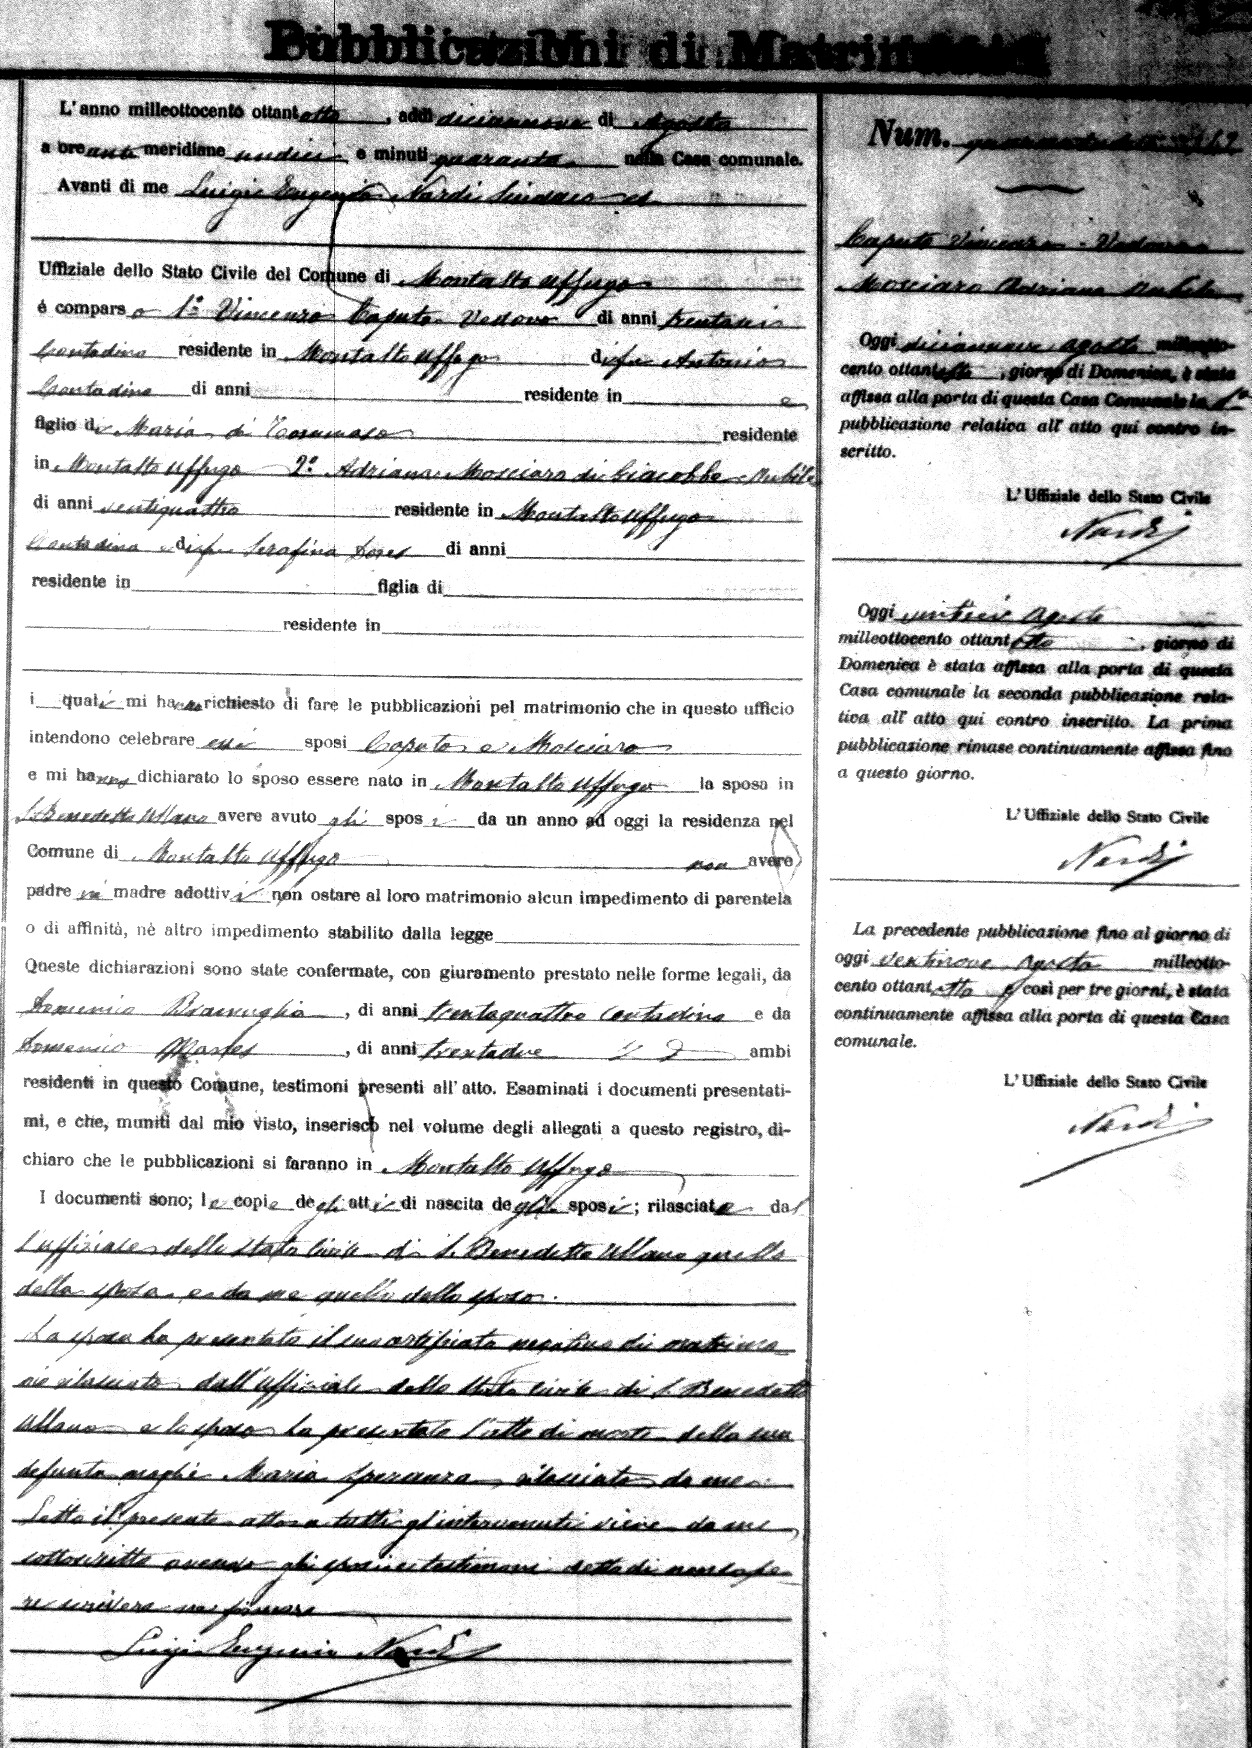 Pubblicazioni di Matrimonio
L'anno milleottocento ottantotto, addì diciannove di Agosto
a ore anti meridiane undici e minuti quaranta nella Casa comunale.
Avanti di me Luigi Eugenio Nardi Sindaco ed
Uffiziale dello Stato Civile del Comune di Montalto Uffugo
è comparso 1º Vincenzo Caputo Vedovo di anni trentasei
Contadino residente in Montalto Uffugo di fu Antonio
Contadino di anni residente in e
figlio di Maria di Tommaso residente
in Montalto Uffugo 2º Adriana Mosciaro di Giacobbe Nubile
di anni ventiquattro residente in Montalto Uffugo
Contadina e di fu Serafina di anni
residente in figlia di
residente in
i quali mi hanno richiesto di fare le pubblicazioni pel matrimonio che in questo ufficio
intendono celebrare essi sposi Caputo e Mosciaro
e mi hanno dichiarato lo sposo essere nato in Montalto Uffugo la sposa in
S. Benedetto Ullano avere avuto gli sposi da un anno ad oggi la residenza nel
Comune di Montalto Uffugo non avere
padre nè madre adottivi non ostare al loro matrimonio alcun impedimento di parentela
o di affinità, nè altro impedimento stabilito dalla legge
Queste dichiarazioni sono state confermate, con giuramento prestato nelle forme legali, da
Domenico , di anni trentaquattro contadino e da
Domenico , di anni trentadue ambi
residenti in questo Comune, testimoni presenti all'atto. Esaminati i documenti presentati-
mi, e che, muniti dal mio visto, inserisco nel volume degli allegati a questo registro, di-
chiaro che le pubblicazioni si faranno in Montalto Uffugo
I documenti sono; le copie degli atti di nascita degli sposi; rilasciate dal
l'uffiziale dello Stato Civile di S. Benedetto Ullano quella
della sposa e da me quello dello sposo.
La sposa ha presentato il suo certificato negativo di matrimo-
nio rilasciato dall'Ufficiale dello Stato Civile di S. Benedetto
Ullano e lo sposo ha presentato l'atto di morte della sua
defunta moglie Maria Speranza rilasciato da me.
Letto il presente atto a tutti gl'intervenuti viene da me
sottoscritto avendo gli sposi e testimoni detto di non sape-
re scrivere nè firmare
Luigi Eugenio Nardi
Num.
Caputo Vincenzo - Vedovo
Mosciaro Adriana Nubile
Oggi diciannove Agosto milleotto-
cento ottantotto, giorno di Domenica, è stata
affissa alla porta di questa Casa Comunale la 1ª
pubblicazione relativa all'atto qui contro in-
scritto.
L'Uffiziale dello Stato Civile
Nardi
Oggi ventisei Agosto
milleottocento ottantotto, giorno di
Domenica è stata affissa alla porta di questa
Casa comunale la seconda pubblicazione rela-
tiva all'atto qui contro inscritto. La prima
pubblicazione rimase continuamente affissa fino
a questo giorno.
L'Uffiziale dello Stato Civile
Nardi
La precedente pubblicazione fino al giorno di
oggi ventinove Agosto milleotto-
cento ottantotto e così per tre giorni, è stata
continuamente affissa alla porta di questa Casa
comunale.
L'Uffiziale dello Stato Civile
Nardi